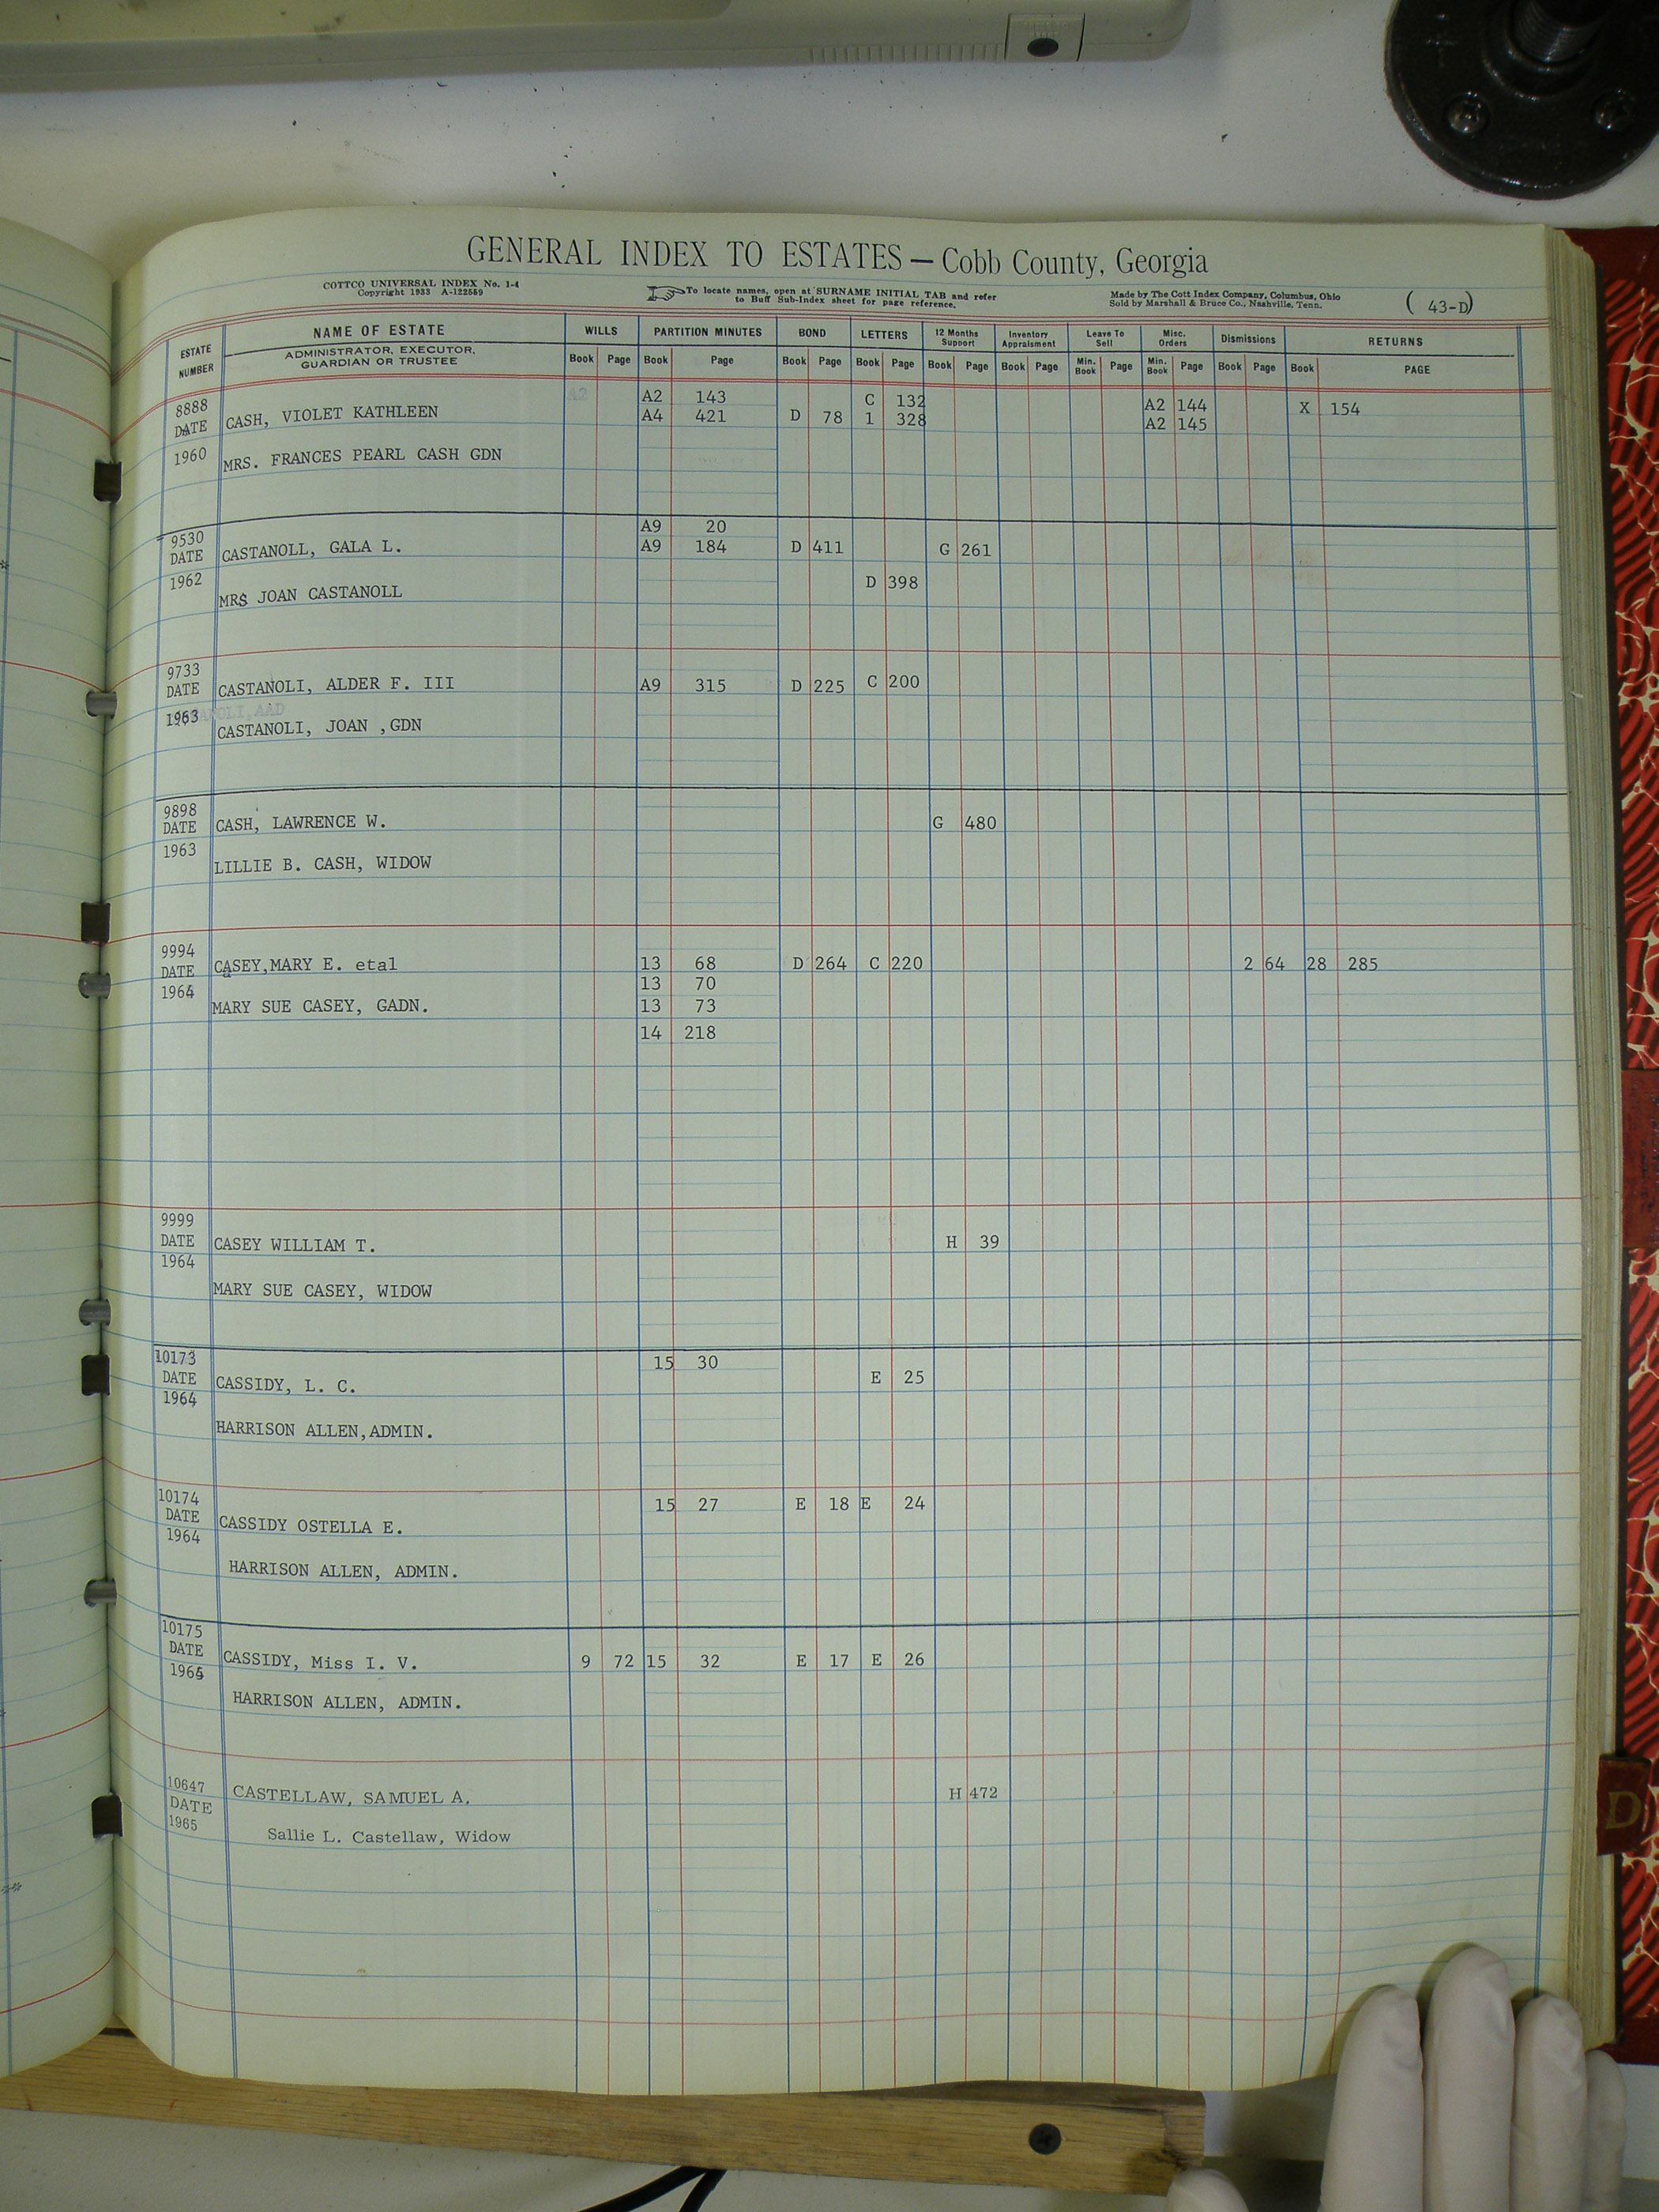 GENERAL INDEX TO ESTATES — Cobb County, Georgia
COTTCO UNIVERSAL INDEX No. 1-4
Copyright 1933 A-122559
To locate names, open at SURNAME INITIAL TAB and refer
to Buff Sub-Index sheet for page reference.
Made by The Cott Index Company, Columbus, Ohio
Sold by Marshall & Bruce Co., Nashville, Tenn.
( 43-D)
ESTATE NUMBER NAME OF ESTATE WILLS PARTITION MINUTES BOND LETTERS 12 Months Support Inventory Appraisment Leave To Sell Misc. Orders Dismissions RETURNS
ADMINISTRATOR, EXECUTOR,
GUARDIAN OR TRUSTEE
Book Page Book Page Book Page Book Page Book Page Book Page Min. Book Page Min. Book Page Book Page Book PAGE
8888 A2 A2 143 C 132 A2 144 X 154
DATE CASH, VIOLET KATHLEEN A4 421 D 78 1 328 A2 145
1960 MRS. FRANCES PEARL CASH GDN
9530 A9 20
DATE CASTANOLL, GALA L. A9 184 D 411 G 261
1962 MRS JOAN CASTANOLL D 398
9733
DATE CASTANOLI, ALDER F. III A9 315 D 225 C 200
1963 CASTANOLI, JOAN ,GDN
9898
DATE CASH, LAWRENCE W. G 480
1963 LILLIE B. CASH, WIDOW
9994
DATE CASEY,MARY E. etal 13 68 D 264 C 220 2 64 28 285
1964 13 70
MARY SUE CASEY, GADN. 13 73
14 218
9999
DATE CASEY WILLIAM T. H 39
1964
MARY SUE CASEY, WIDOW
10173 15 30
DATE CASSIDY, L. C. E 25
1964
HARRISON ALLEN,ADMIN.
10174 15 27 E 18 E 24
DATE CASSIDY OSTELLA E.
1964
HARRISON ALLEN, ADMIN.
10175
DATE CASSIDY, Miss I. V. 9 72 15 32 E 17 E 26
HARRISON ALLEN, ADMIN.
10647 CASTELLAW, SAMUEL A. H 472
DATE
1965 Sallie L. Castellaw, Widow
D